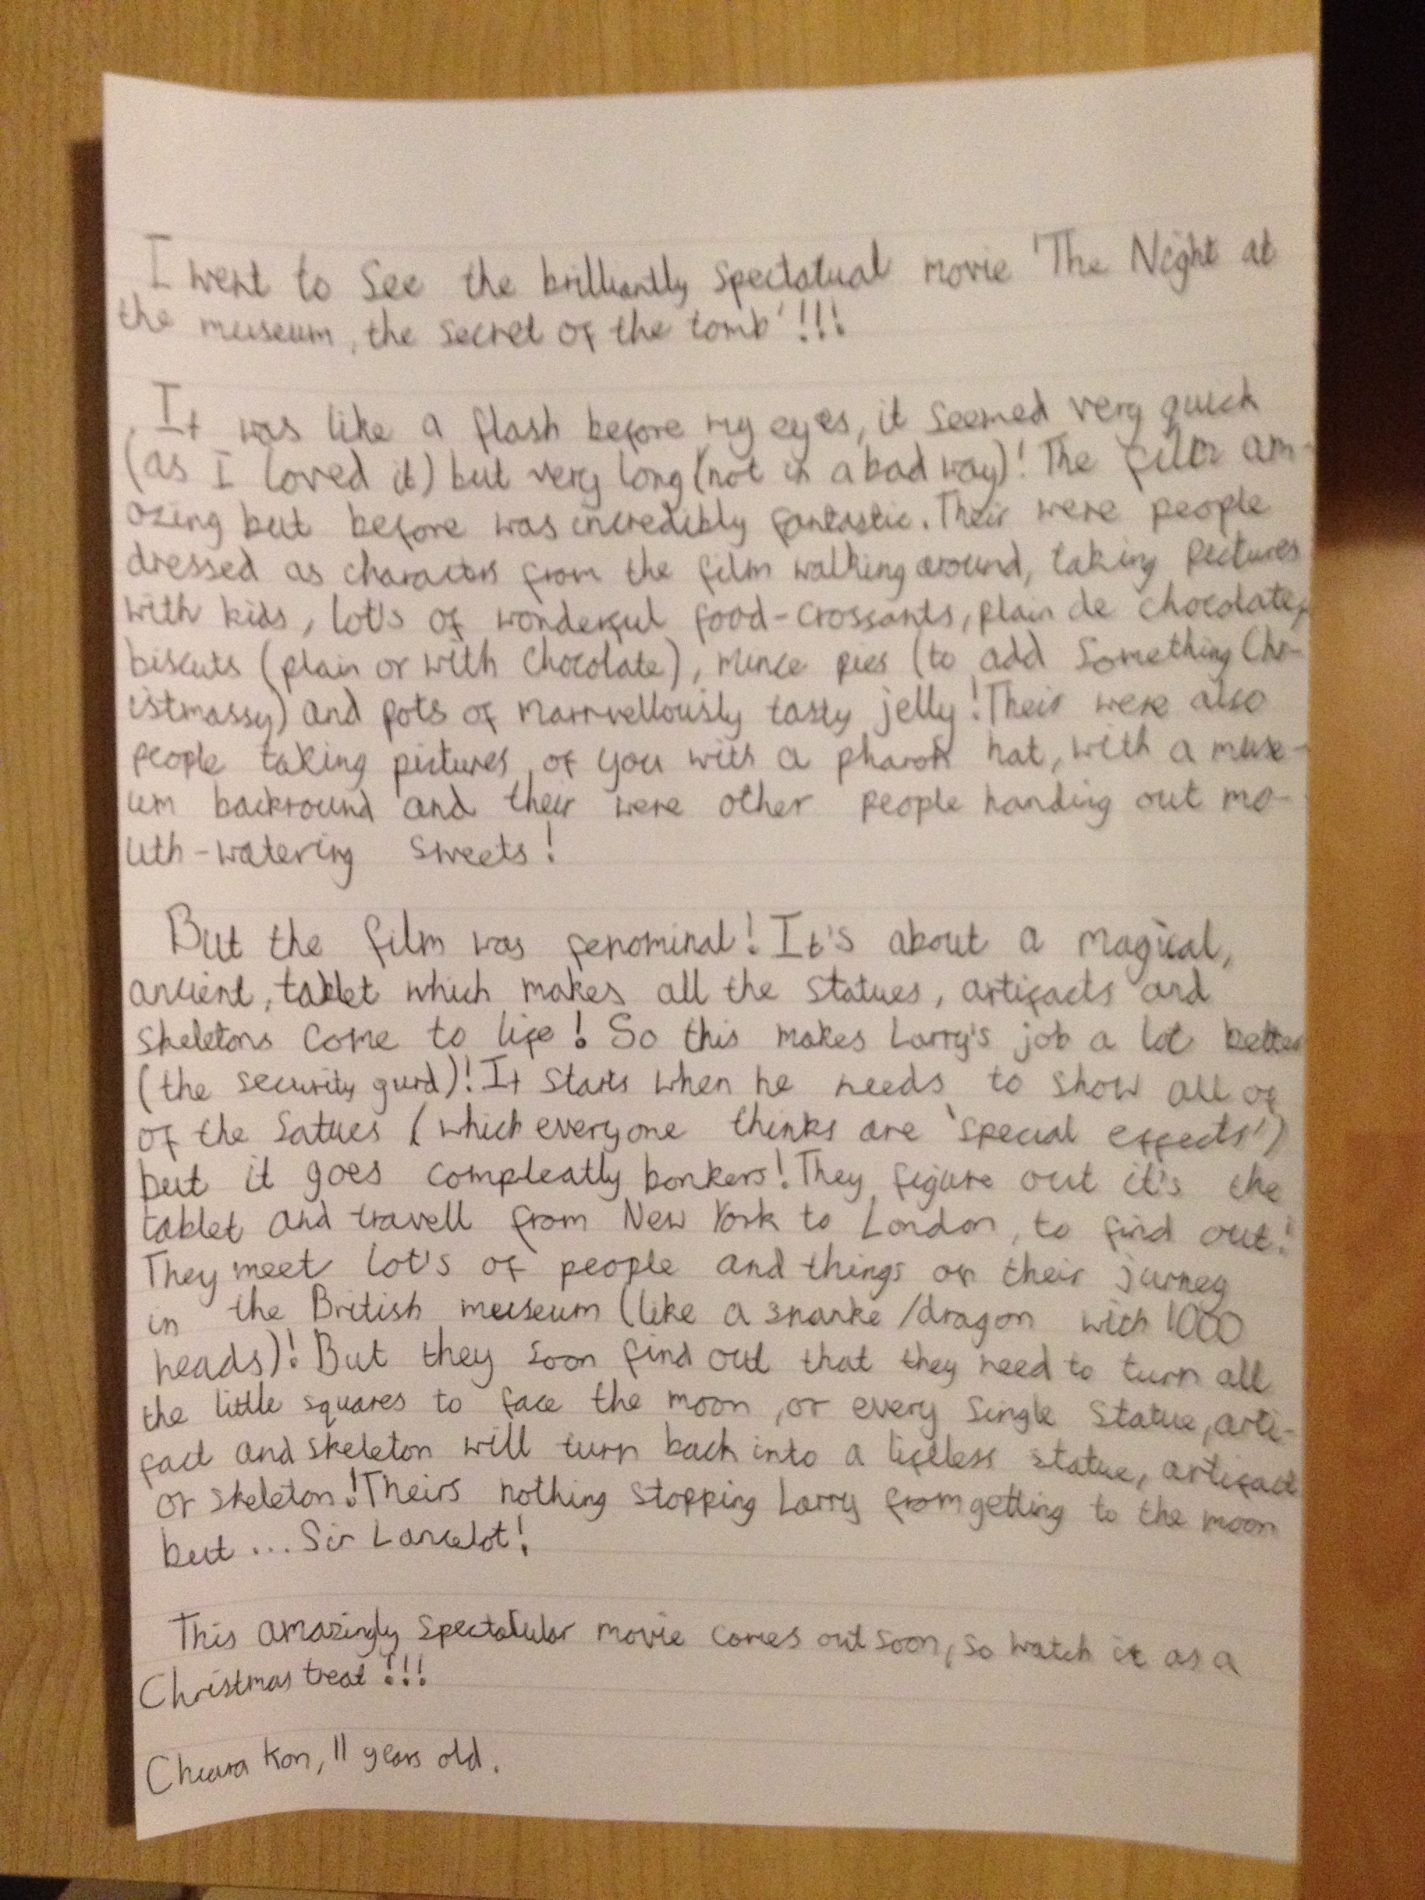 I went to See the brilliantly Spectatual movie 'The Night at
the museum, the secret of the tomb'!!!
It was like a flash before my eyes, it seemed very quick
(as I loved it) but very long (not in a bad way)! The film am-
azing but before was incredibly fantastic. Their were people
dressed as characters from the film walking around, taking pictures
with kids, lot's of wonderful food-crossants, plain de chocolate,
biscuts (plain or with chocolate), mince pies (to add Something Chr-
istmassy) and pots of marrvellously tasty jelly! Their were also
people taking pictures of you with a pharoh hat, with a muse-
um backround and their were other people handing out mo-
uth-watering sweets!
But the film was fenominal! It's about a magical,
ancient, tablet which makes all the statues, artifacts and
skeletons come to life! So this makes Larry's job a lot better
(the security gurd)! It starts when he needs to show all of
of the Satues (which everyone thinks are 'special effects')
but it goes compleatly bonkers! They figure out it's the
tablet and travell from New York to London, to find out!
They meet lot's of people and things on their jurney
in the British museum (like a snanke/dragon with 1000
heads)! But they soon find out that they need to turn all
the little squares to face the moon, or every single statue, arti-
fact and skeleton will turn back into a lifeless statue, artifact
or skeleton! Theirs nothing stopping Larry from getting to the moon
but ... Sir Lancelot!
This amazingly spectatular movie comes out soon, so watch it as a
Christmas treat!!!
Chiara Kon, 11 years old.